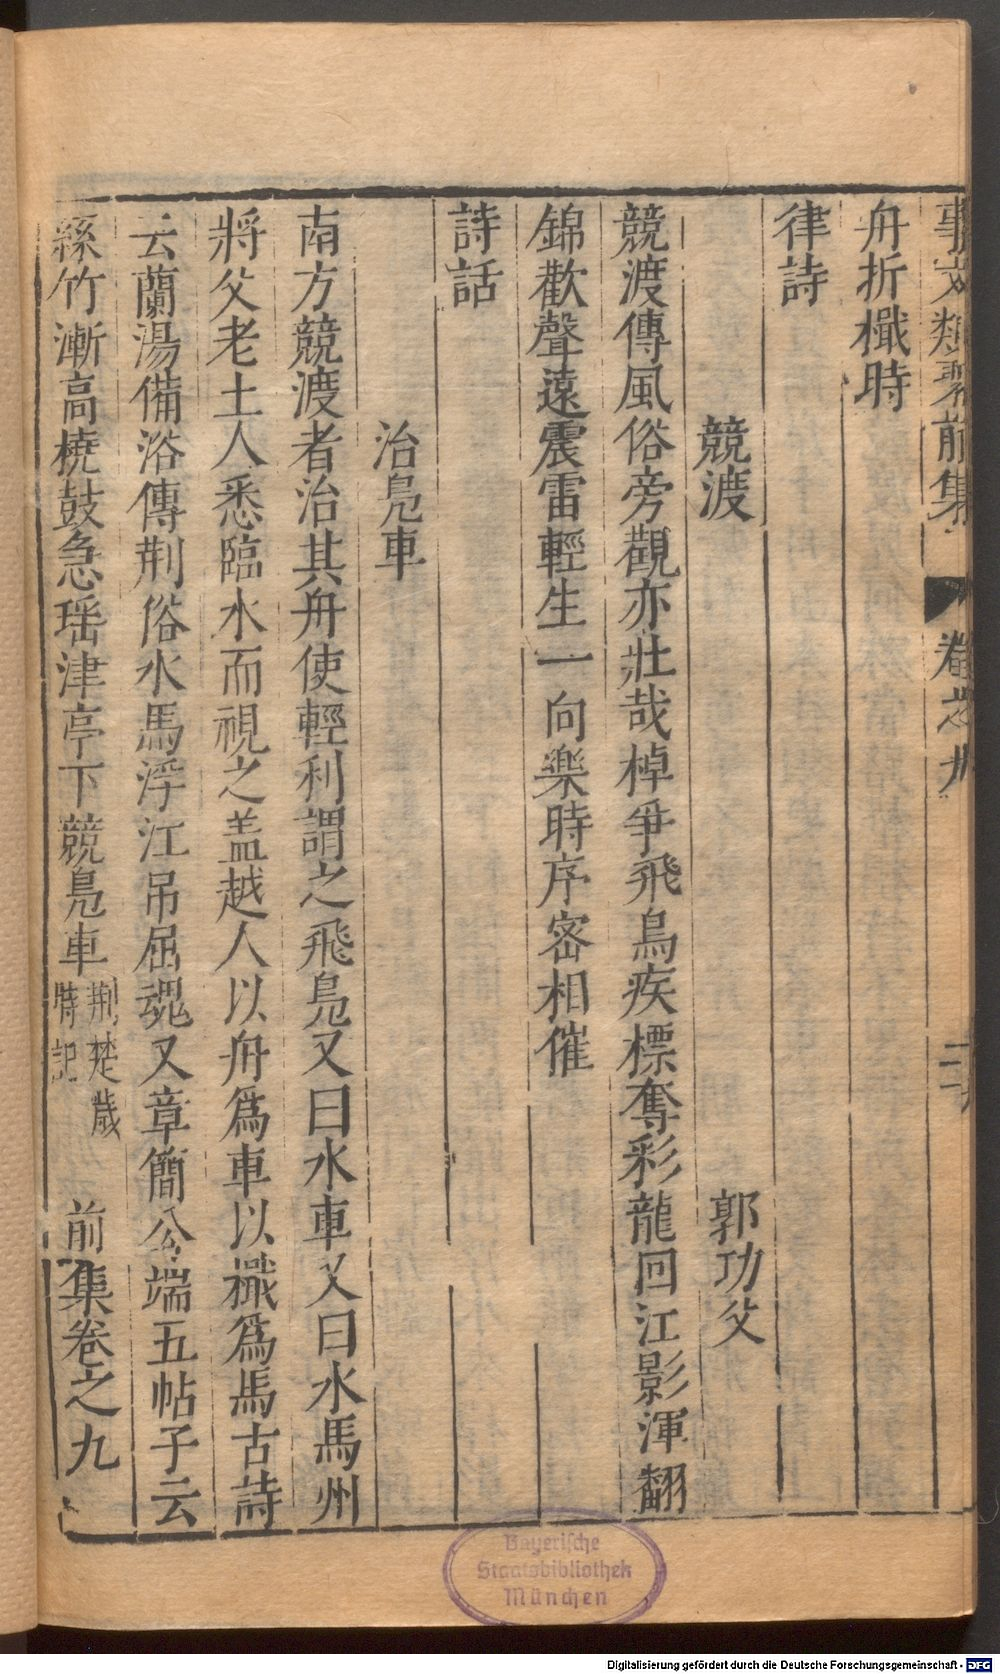 事文類聚前集 卷之九
舟折檝時
律詩
競渡 郭功父
競渡傳風俗旁觀亦壯哉棹爭飛鳥疾標奪彩龍回江影渾翻
錦歡聲遠震雷輕生一向樂時序宻相催
詩話
治鳬車
南方競渡者治其舟使輕利謂之飛鳬又曰水車又曰水馬州
將父老土人悉臨水而視之盖越人以舟爲車以檝爲馬古詩
云蘭湯備浴傳荆俗水馬浮江吊屈魂又章簡公端五帖子云
絲竹漸高橈鼓急瑶津亭下競鳬車荆楚歲時記 前集卷之九
Bayerische
Staatsbibliothek
München
Digitalisierung gefördert durch die Deutsche Forschungsgemeinschaft - DFG